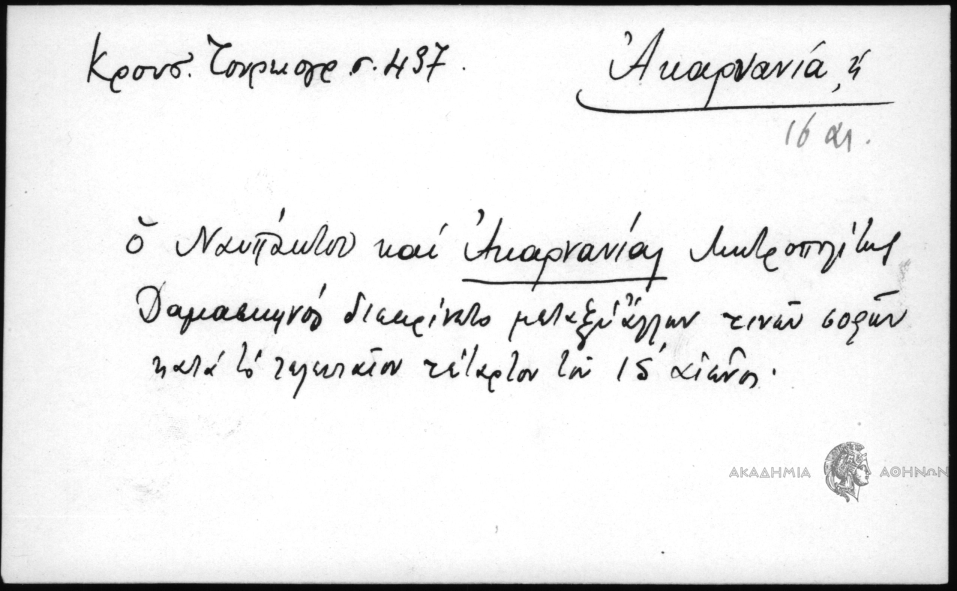 Κρουσ. Τουρκογρ σ. 497.
Ἀκαρνανία, ἡ
16 αι.
ὁ Ναυπάκτου καί Ἀκαρνανίας Μητροπολίτης
Δαμασκηνός διεκρίνετο μεταξύ ἄλλων τινῶν σοφῶν
κατά τό τελευταῖον τέταρτον τοῦ ΙϚ΄ αἰῶνος.
ΑΚΑΔΗΜΙΑ ΑΘΗΝΩΝ